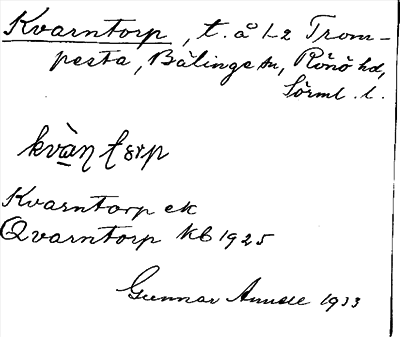 Kvarntorp, t. å 1-2 Trom-
pesta, Bälinge sn, Rönö hd,
Sörml. l.
kvàṇ tɔrp
Kvarntorp ek
Qvarntorp kb 1925
Gunnar 1933